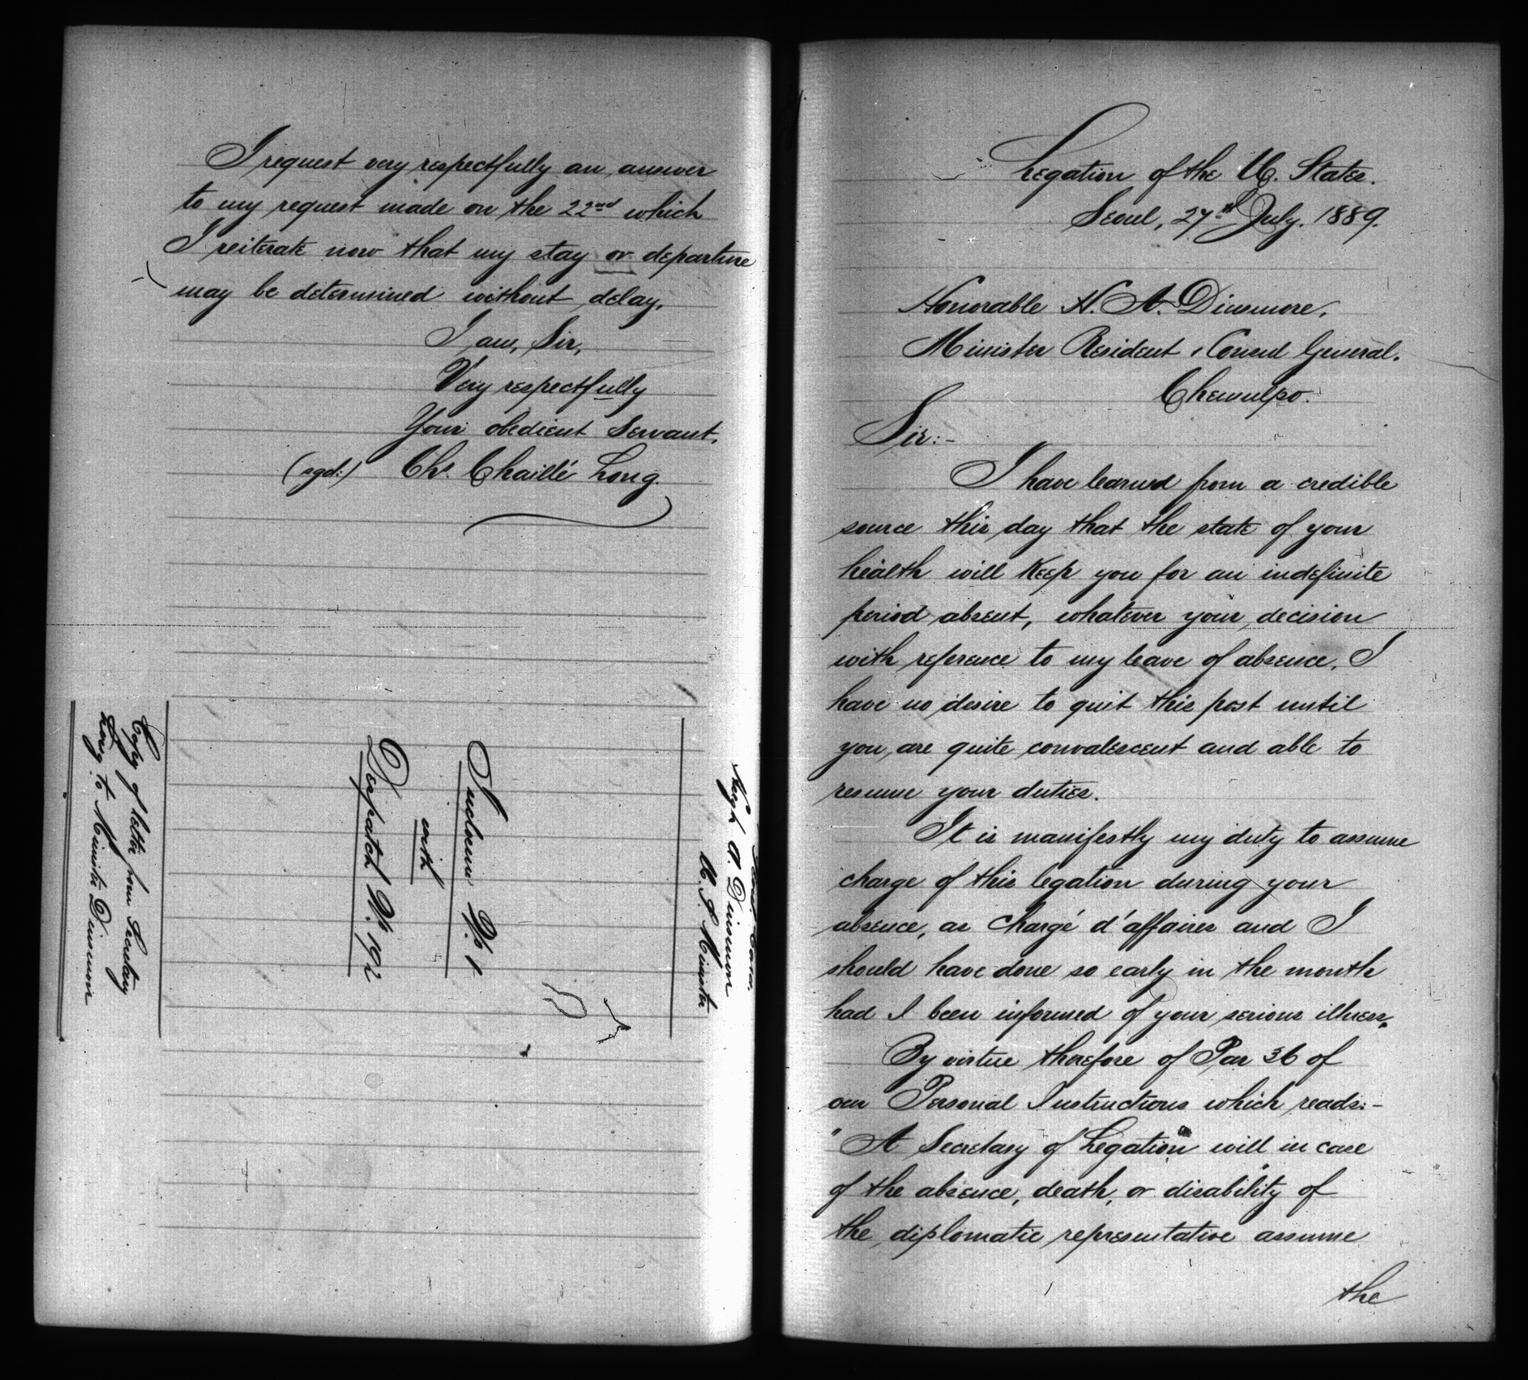 I request very respectfully an answer
to my request made on the 22nd which
I reiterate now that my stay or departure
may be determined without delay.
I am, Sir,
Very respectfully
Your obedient Servant,
(sgd:) Chs. Chaillé Long.
Hugh A. Dinsmore
U. S. Minister
Inclosure No. 1
with
Despatch No. 192
Copy of letter from Secretary
Long to Minister Dinsmore
Legation of the U. States.
Seoul, 27th July. 1889.
Honorable H. A. Dinsmore,
Minister Resident & Consul General.
Chemulpo.
Sir:-
I have learned from a credible
source this day that the state of your
health will keep you for an indefinite
period absent, whatever your decision
with reference to my leave of absence. I
have no desire to quit this post until
you are quite convalescent and able to
resume your duties.
It is manifestly my duty to assume
charge of this legation during your
absence, as Chargé d'affaires and I
should have done so early in the month
had I been informed of your serious illness.
By virtue therefore of Par 36 of
our Personal Instructions which reads:-
"A Secretary of Legation will in case
of the absence, death, or disability of
the diplomatic representative assume
the